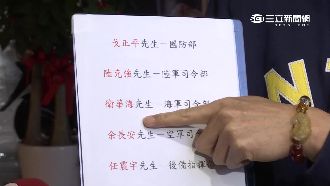 三立新聞網
戈正平先生－國防部
陸元強先生－陸軍司令部
俞華海先生－海軍司令部
余長安先生－空軍司令
任震宇先生－後備指揮